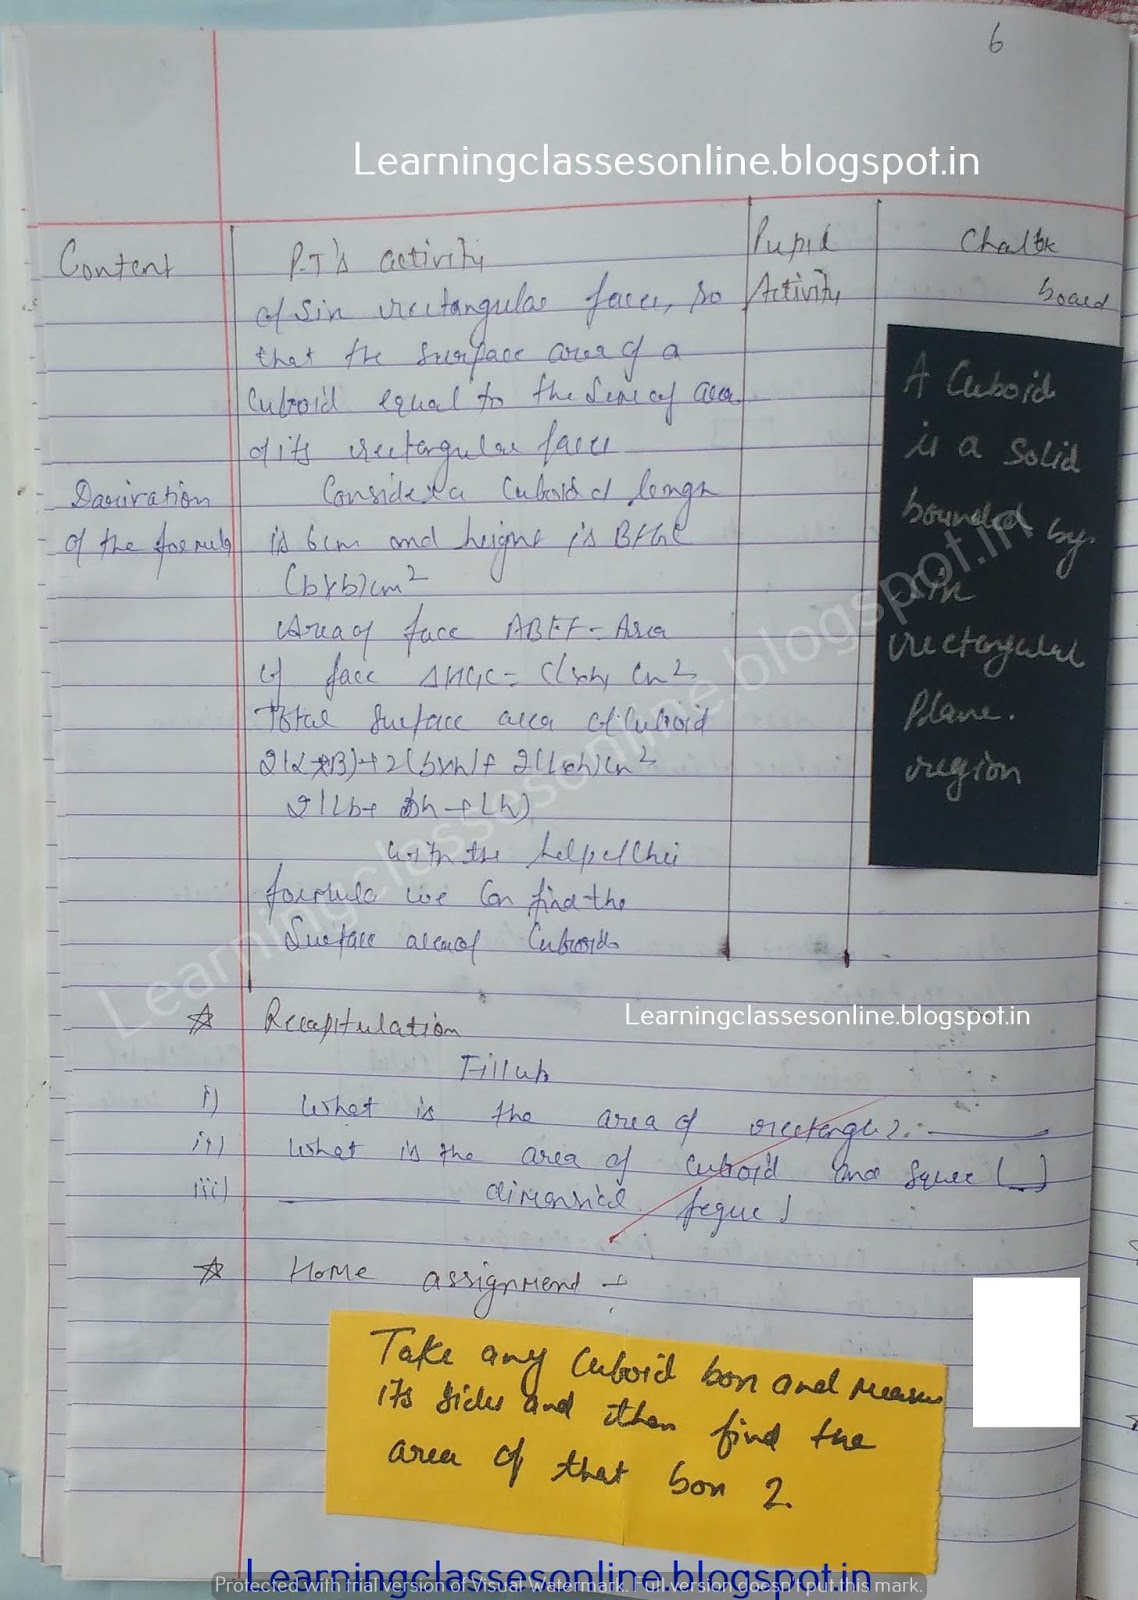 6
Learningclassesonline.blogspot.in
Content
P.T's activity
Pupil
Activity
Chalk
board
of Six rectangular faces, so
that the surface area of a
Cuboid equal to the Sum of area
of its rectangular faces
Derivation
of the formula
Consider a Cuboid of length
is 6cm and height is
(b×b)cm²
Area of face ABEF = Area
of face = cm²
Total Surface area of Cuboid
2(L×B)+2(b×h)+2(l×h)cm²
2(Lb+bh+Lh)
with the help of this
formula we Can find the
Surface area of Cuboid.
A Cuboid
is a solid
bounded by
six
rectangular
Plane.
region
Learningclassesonline.blogspot.in
☆ Recapitulation
Learningclassesonline.blogspot.in
Fillup
i) What is the area of rectangle?. ______
ii) What is the area of Cuboid and Square (__)
iii) ______ dimensional figure!
☆ Home assignment
Take any Cuboid box and measure
its sides and then find the
area of that box 2.
Learningclassesonline.blogspot.in
Protected with trial version of Visual Watermark. Full version doesn't put this mark.